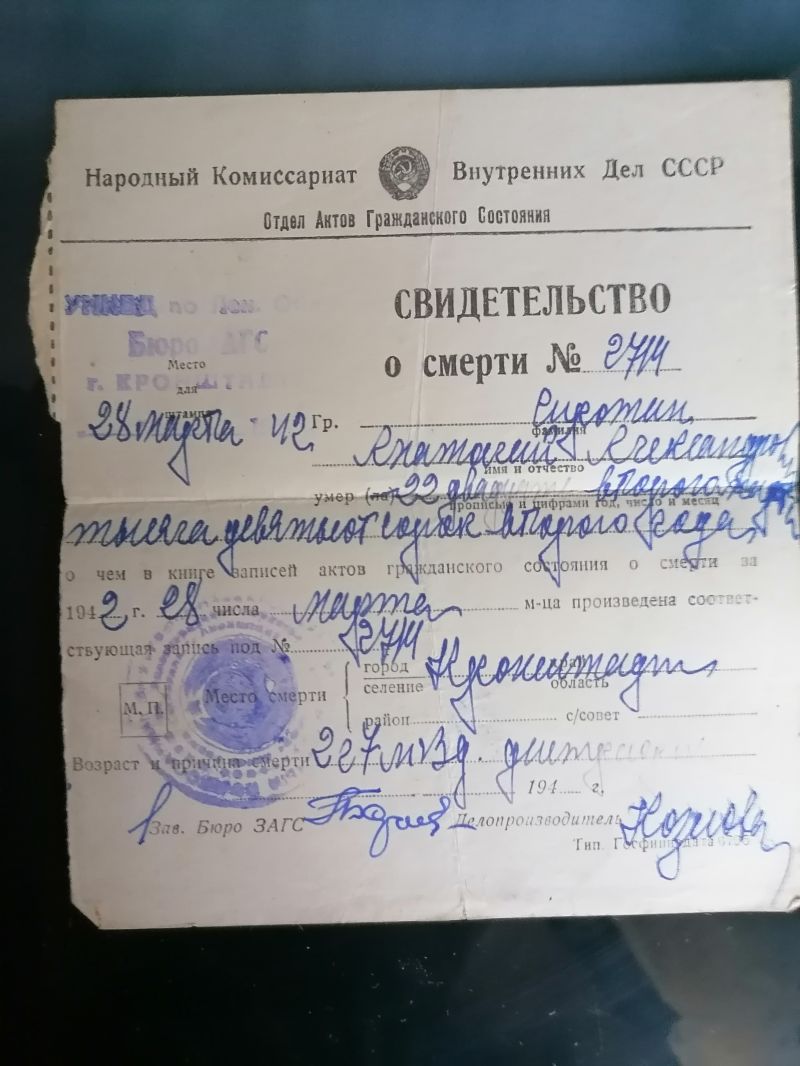 Народный Комиссариат Внутренних Дел СССР
Отдел Актов Гражданского Состояния
по Лен.
Бюро ЗАГС
Место
г. КРОНШТАД
для
штампа
28 марта 42
СВИДЕТЕЛЬСТВО
о смерти № 2714
Гр. Сиротин
фамилия
Анатолий Александров
имя и отчество
умер (ла) 22 двадцать второго
прописью и цифрами год, число и месяц
тысяча девятьсот сорок второго года
о чем в книге записей актов гражданского состояния о смерти за
1942 г. 28 числа марта м-ца произведена соответ-
ствующая запись под № 2714
М. П. Место смерти
город Кронштадт край
селение область
район с/совет
Возраст и причина смерти 2 г 7 м 3 д.
194 г.
Зав. Бюро ЗАГС Делопроизводитель
Тип. Госфиниздата